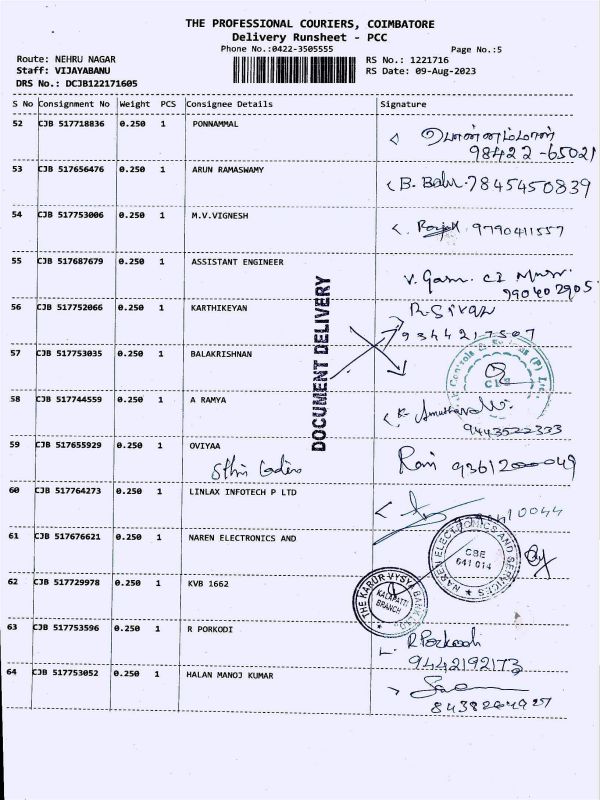 THE PROFESSIONAL COURIERS, COIMBATORE
Delivery Runsheet - PCC
Phone No.:0422-3505555
Page No.:5
Route: NEHRU NAGAR
RS No.: 1221716
Staff: VIJAYABANU
RS Date: 09-Aug-2023
DRS No.: DCJB122171605
S No Consignment No Weight PCS Consignee Details Signature
52 CJB 517718836 0.250 1 PONNAMMAL பொன்னம்மாள்
98422-65021
53 CJB 517656476 0.250 1 ARUN RAMASWAMY B. Balu. 7845450839
54 CJB 517753006 0.250 1 M.V.VIGNESH 9790411557
55 CJB 517687679 0.250 1 ASSISTANT ENGINEER V.
990402905
56 CJB 517752066 0.250 1 KARTHIKEYAN R.Sivan
9344217507
57 CJB 517753035 0.250 1 BALAKRISHNAN
DOCUMENT DELIVERY
58 CJB 517744559 0.250 1 A RAMYA
9443522333
59 CJB 517655929 0.250 1 OVIYAA Rani 9361200049
60 CJB 517764273 0.250 1 LINLAX INFOTECH P LTD
61 CJB 517676621 0.250 1 NAREN ELECTRONICS AND
NAREN ELECTRONICS AND SERVICES
CBE
641 014
62 CJB 517729978 0.250 1 KVB 1662
THE KARUR VYSYA BANK
KALAPATTI
BRANCH
63 CJB 517753596 0.250 1 R PORKODI R Porkodi
9442192173
64 CJB 517753052 0.250 1 HALAN MANOJ KUMAR
8438264927